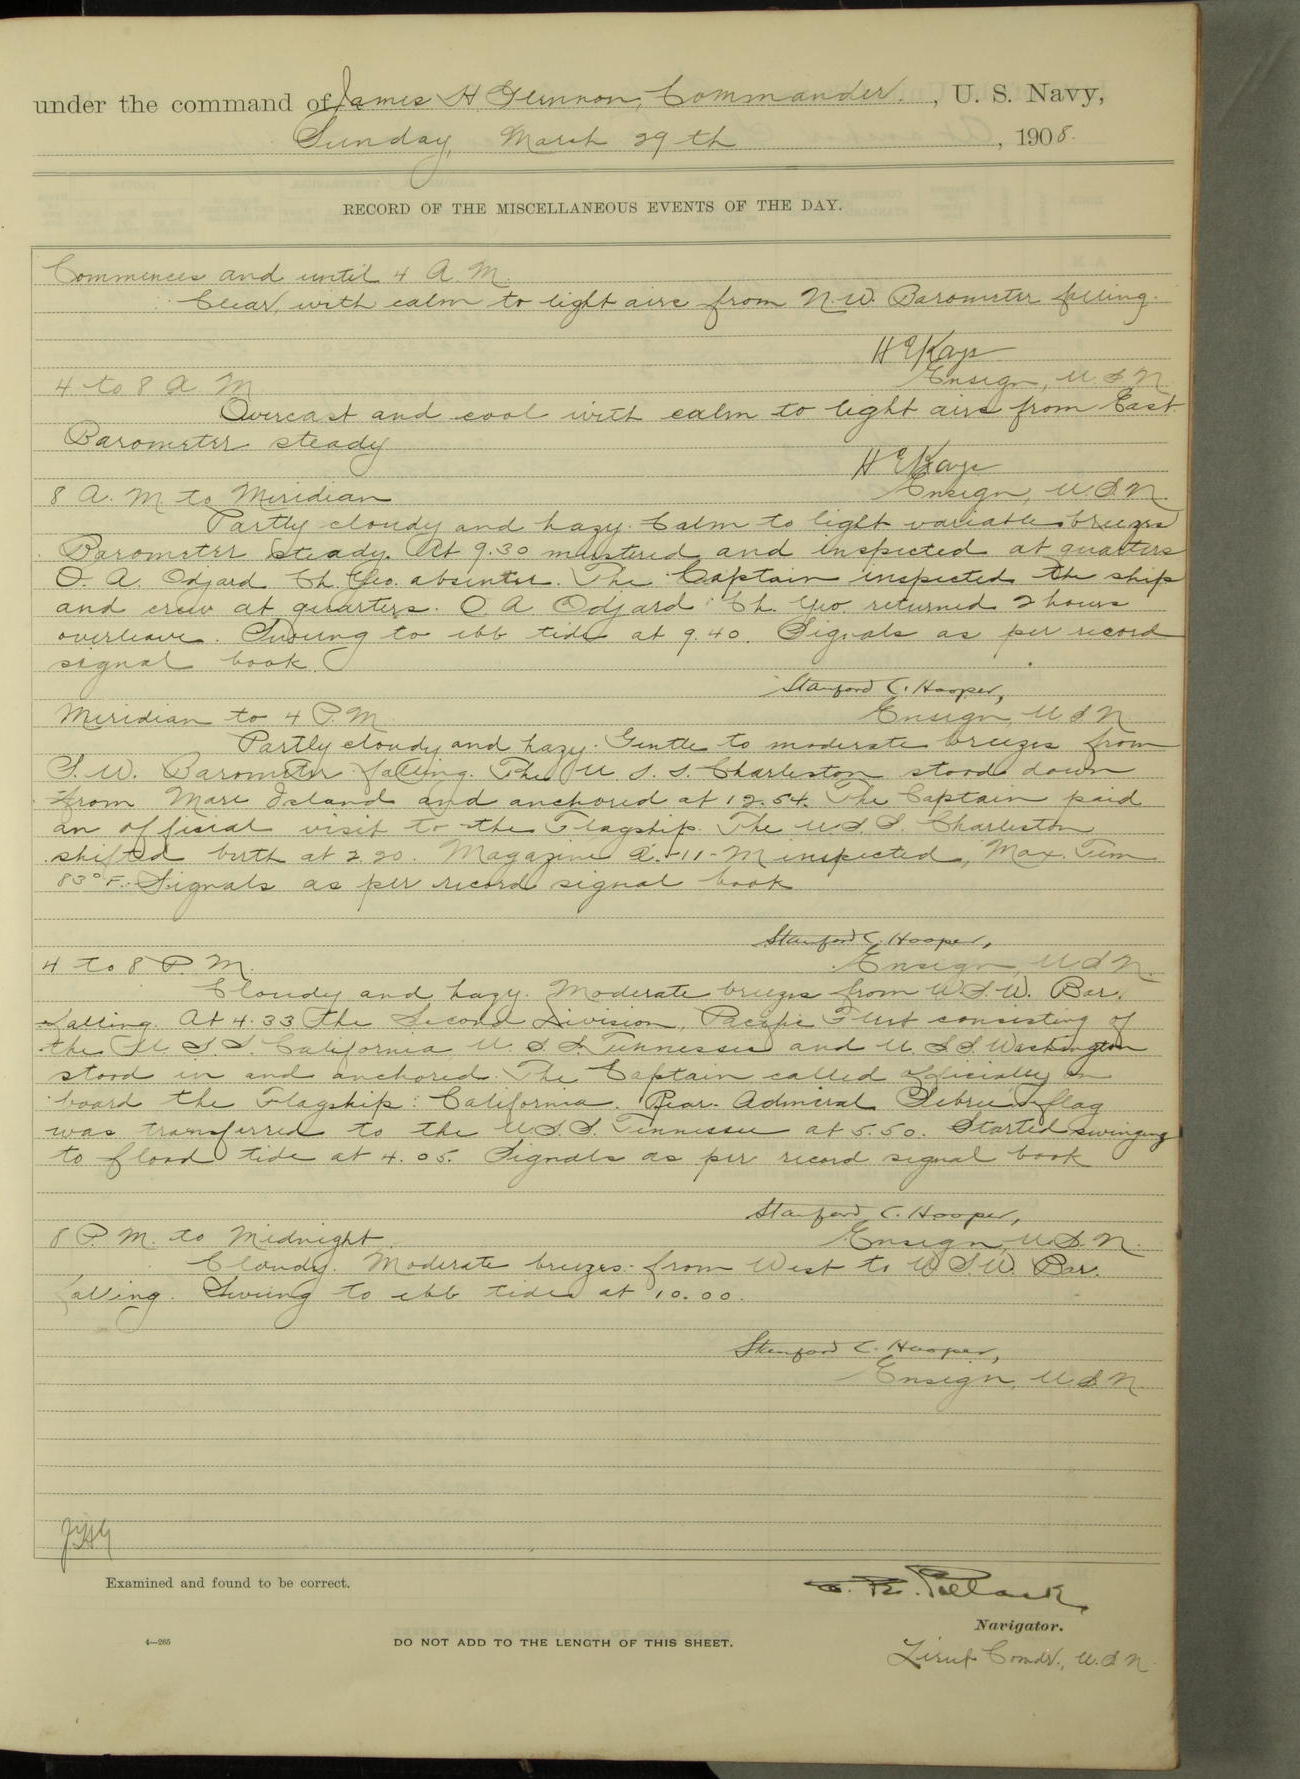 under the command of James H Glennon, Commander, U. S. Navy,
Sunday, March 29th, 1908.
RECORD OF THE MISCELLANEOUS EVENTS OF THE DAY.
Commences and until 4 A. M.
Clear, with calm to light airs from N.W. Barometer falling.
H E Kays
Ensign, U S N
4 to 8 A M
Overcast and cool with calm to light airs from East
Barometer steady
H E Kays
Ensign, U.S.N.
8 A. M to Meridian
Partly cloudy and hazy. Calm to light variable breezes
Barometer steady. At 9.30 mustered and inspected at quarters
O. A. Odjard Ch. Yeo. absentee. The Captain inspected the ship
and crew at quarters. O A. Odjard Ch. Yeo. returned 2 hours
overleave. Swung to ebb tide at 9.40. Signals as per record
signal book.
Stanford C. Hooper,
Ensign, U S N
Meridian to 4 P.M.
Partly cloudy and hazy. Gentle to moderate breezes from
S.W. Barometer falling. The U. S. S. Charleston stood down
from Mare Island and anchored at 12.54. The Captain paid
an official visit to the Flagship. The U.S.S. Charleston
shifted berth at 2.20. Magazine A-11-M inspected, Max. Tem
83° F. Signals as per record signal book
Stanford C. Hooper,
Ensign, U S N.
4 to 8 P. M.
Cloudy and hazy. Moderate breezes from W.S.W. Bar.
falling. At 4.33 the Second Division, Pacific Fleet consisting of
the U. S. S. California, U. S. S. Tennessee and U. S. S. Washington
stood in and anchored. The Captain called officially on
board the Flagship California. Rear-Admiral Sebree's flag
was transferred to the U.S.S. Tennessee at 5.50. Started swinging
to flood tide at 4.05. Signals as per record signal book
Stanford C. Hooper,
Ensign, U.S.N.
8 P. M. to Midnight
Cloudy. Moderate breezes from West to W.S.W. Bar.
falling. Swung to ebb tide at 10.00.
Stanford C. Hooper,
Ensign, U.S.N.
JHG
Examined and found to be correct.
E. R. Pollock,
Navigator.
4—265
DO NOT ADD TO THE LENGTH OF THIS SHEET.
Lieut Comdr., U.S.N.